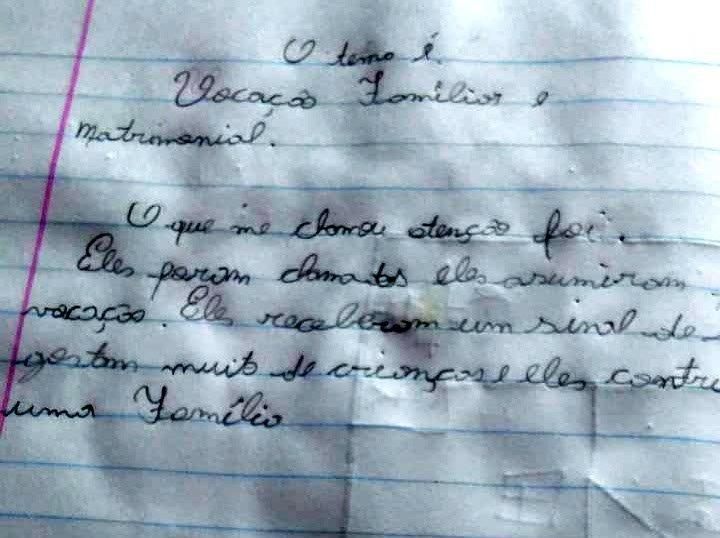 O tema é
Vocação Familiar e
matrimonial.
O que me chamou atenção foi.
Eles param chamatos eles asumiram
vocação. Eles receberam um sinal de
gostam muito de crianças e eles contru
uma Família